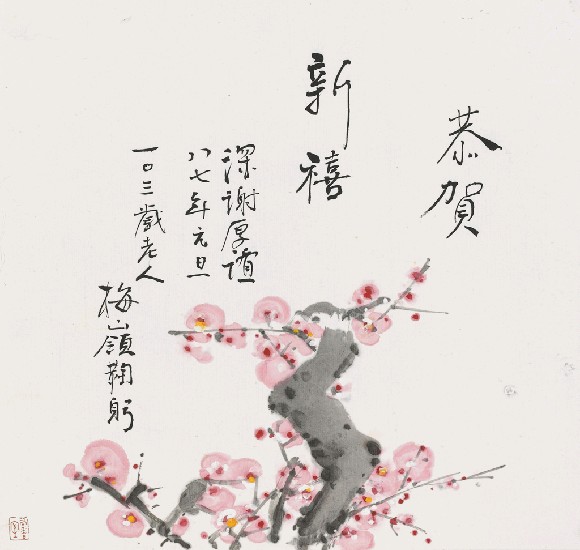 恭賀
新禧
深謝厚誼
八七年元旦
一〇三歲老人
梅嶺鞠躬